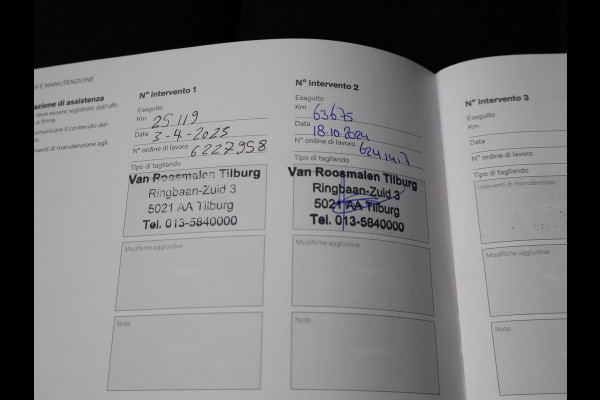 A E MANUTENZIONE
azione di assistenza
deve essere registrato dall'offi-
e firma.
omunicare il contenuto del-
venti di manutenzione agli
N° intervento 1
Eseguito
Km 25 119
Data 3-4-2023
N° ordine di lavoro 6227958
Tipo di tagliando
Van Roosmalen Tilburg
Ringbaan-Zuid 3
5021 AA Tilburg
Tel. 013-5840000
Modifiche aggiuntive
Note
N° intervento 2
Eseguito
Km 63675
Data 18.10.2024
N° ordine di lavoro 6241417
Tipo di tagliando
Van Roosmalen Tilburg
Ringbaan-Zuid 3
5021 AA Tilburg
Tel. 013-5840000
Modifiche aggiuntive
Note
N° intervento 3
Eseguito
Km
Data
N° ordine di lavoro
Tipo di tagliando
Interventi di manutenzione
Modifiche aggiuntive
Note